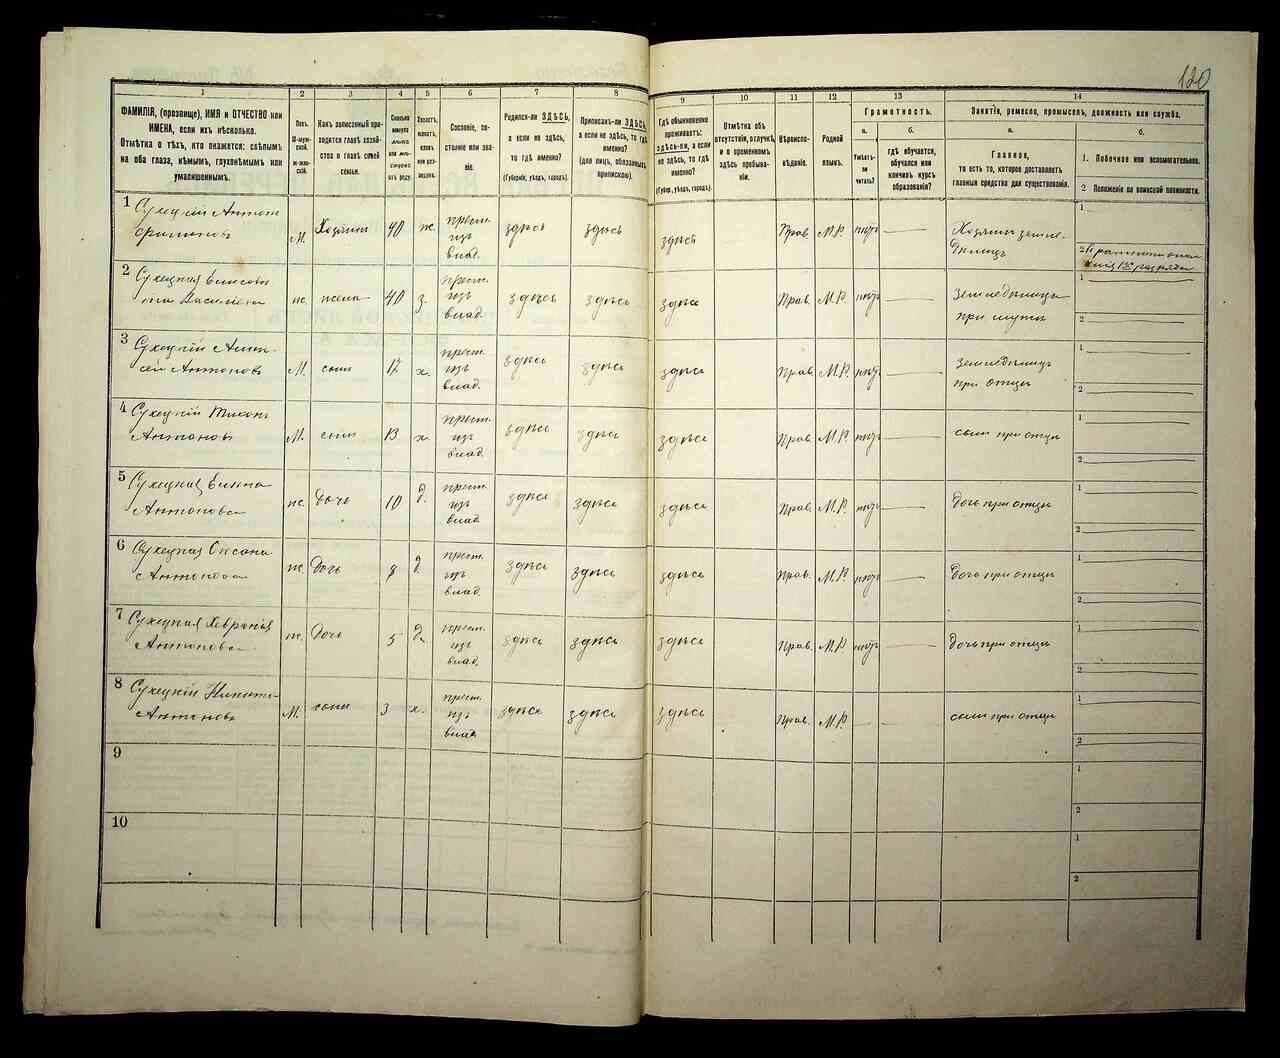 120
1
2
3
4
5
6
7
8
9
10
11
12
13
14
ФАМИЛІЯ, (прозвище), ИМЯ и ОТЧЕСТВО или
ИМЕНА, если ихъ нѣсколько.
Отмѣтка о тѣхъ, кто окажется: слѣпымъ
на оба глаза, нѣмымъ, глухонѣмымъ или
умалишеннымъ.
Полъ.
М-муж-
ской.
Ж-жен-
скій.
Какъ записанный при-
ходится главѣ хозяй-
ства и главѣ своей
семьи.
Сословіе, со-
стояніе или зва-
ніе.
Родился-ли ЗДѢСЬ,
а если не здѣсь,
то гдѣ именно?
(Губернія, уѣздъ, городъ).
Приписанъ-ли ЗДѢСЬ,
а если не здѣсь, то гдѣ
именно?
(для лицъ, обязанныхъ
припискою).
Гдѣ обыкновенно
проживаетъ:
здѣсь-ли, а если
не здѣсь, то гдѣ
именно?
(Губер., уѣздъ, городъ).
Отмѣтка объ
отсутствіи, отлучкѣ
и о временномъ
здѣсь пребыва-
ніи.
Вѣроиспо-
вѣданіе.
Родной
языкъ.
Грамотность.
а.
Умѣетъ-
ли
читать?
б.
гдѣ обучается,
обучался или
кончилъ курсъ
образованія?
Занятія, ремесло, промыселъ, должность или служба.
а.
Главное,
то есть то, которое доставляетъ
главныя средства для существованія.
б.
1. Побочное или вспомогательное.
2 Положеніе по воинской повинности.
1 Сухецкій Антонъ
М. Хозяинъ 40 ж. крест. изъ влад. здѣсь здѣсь здѣсь Прав. М.Р. нѣтъ
Хозяинъ земле-
дѣлецъ
1
2
2 Сухецкая
жс. жена 40 з. крест. изъ влад. здѣсь здѣсь здѣсь Прав. М.Р. нѣтъ
при мужѣ
1
2
3 Сухецкій
Антоновъ М. сынъ 17 х. крест. изъ влад. здѣсь здѣсь здѣсь Прав. М.Р. нѣтъ
Земледѣлецъ
при отцѣ
1
2
4 Сухецкій Тихонъ
Антоновъ М. сынъ 13 х. крест. изъ влад. здѣсь здѣсь здѣсь Прав. М.Р. нѣтъ сынъ при отцѣ
1
2
5 Сухецкая
Антонова ж. Дочь 10 д. крест. изъ влад. здѣсь здѣсь здѣсь Прав. М.Р. нѣтъ Дочь при отцѣ
1
2
6 Сухецкая Оксана
Антонова ж. Дочь 8 д. крест. изъ влад. здѣсь здѣсь здѣсь Прав. М.Р. нѣтъ Дочь при отцѣ
1
2
7 Сухецкая Хевронія
Антонова ж. Дочь 5 д. крест. изъ влад. здѣсь здѣсь здѣсь Прав. М.Р. нѣтъ Дочь при отцѣ
1
2
8 Сухецкій Никита
Антоновъ М. сынъ 3 х. крест. изъ влад. здѣсь здѣсь здѣсь Прав. М.Р. сынъ при отцѣ
1
2
9
1
2
10
1
2